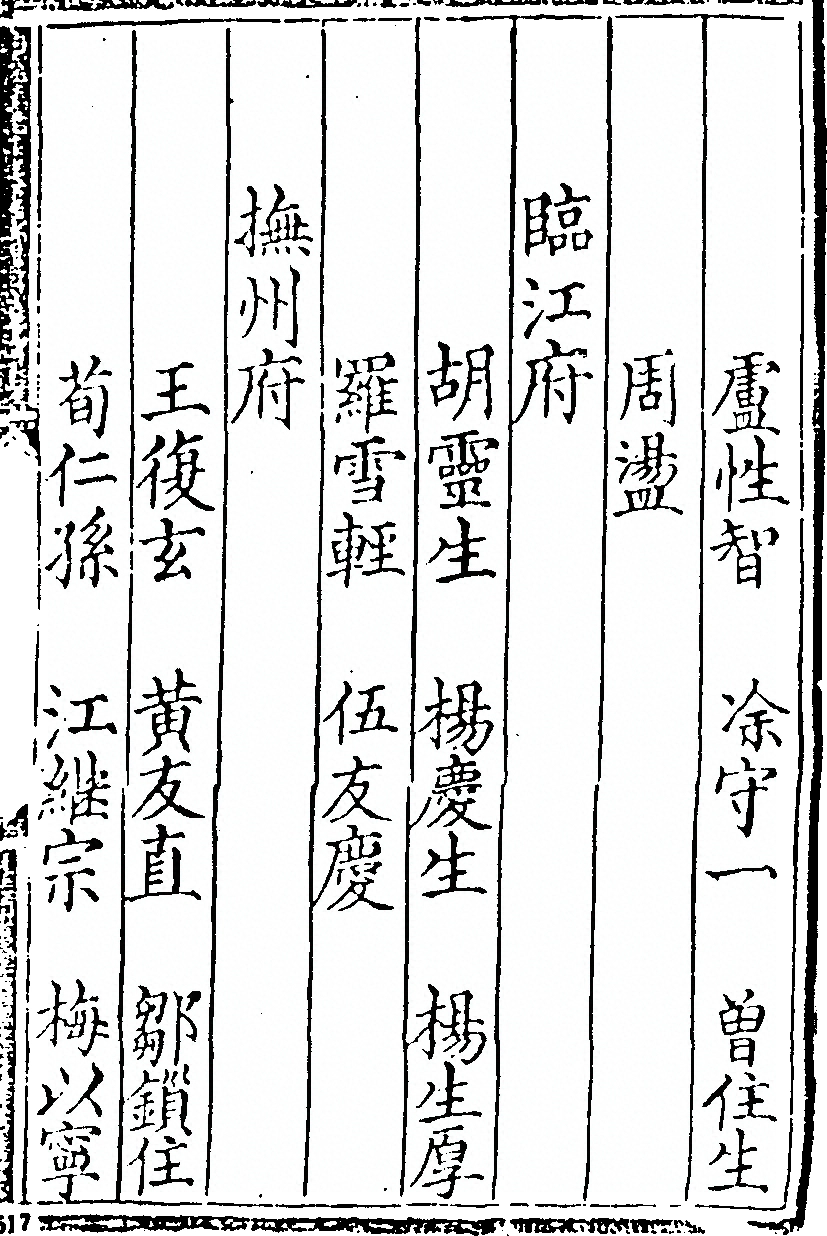 盧性智 凃守一 曾住生
周盪
臨江府
胡靈生 楊慶生 楊生厚
羅雪輕 伍友慶
撫州府
王復玄 黄友直 鄒鎖住
荀仁孫 江継宗 梅以寧
617